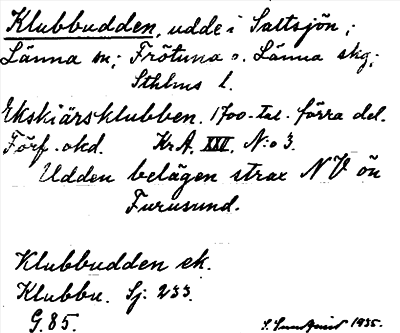 Klubbudden, udde i Saltsjön;
Länna sn; Frötuna o. Länna skg;
Sthlms l.
Ekskiärsklubben. 1700-tal. förra del.
Förf. okd. Kr.A. XXV. N:o 3.
Udden belägen strax NV ön
Furusund.
Klubbudden ek.
Klubbu. Sj: 233.
G. 85. 1935.